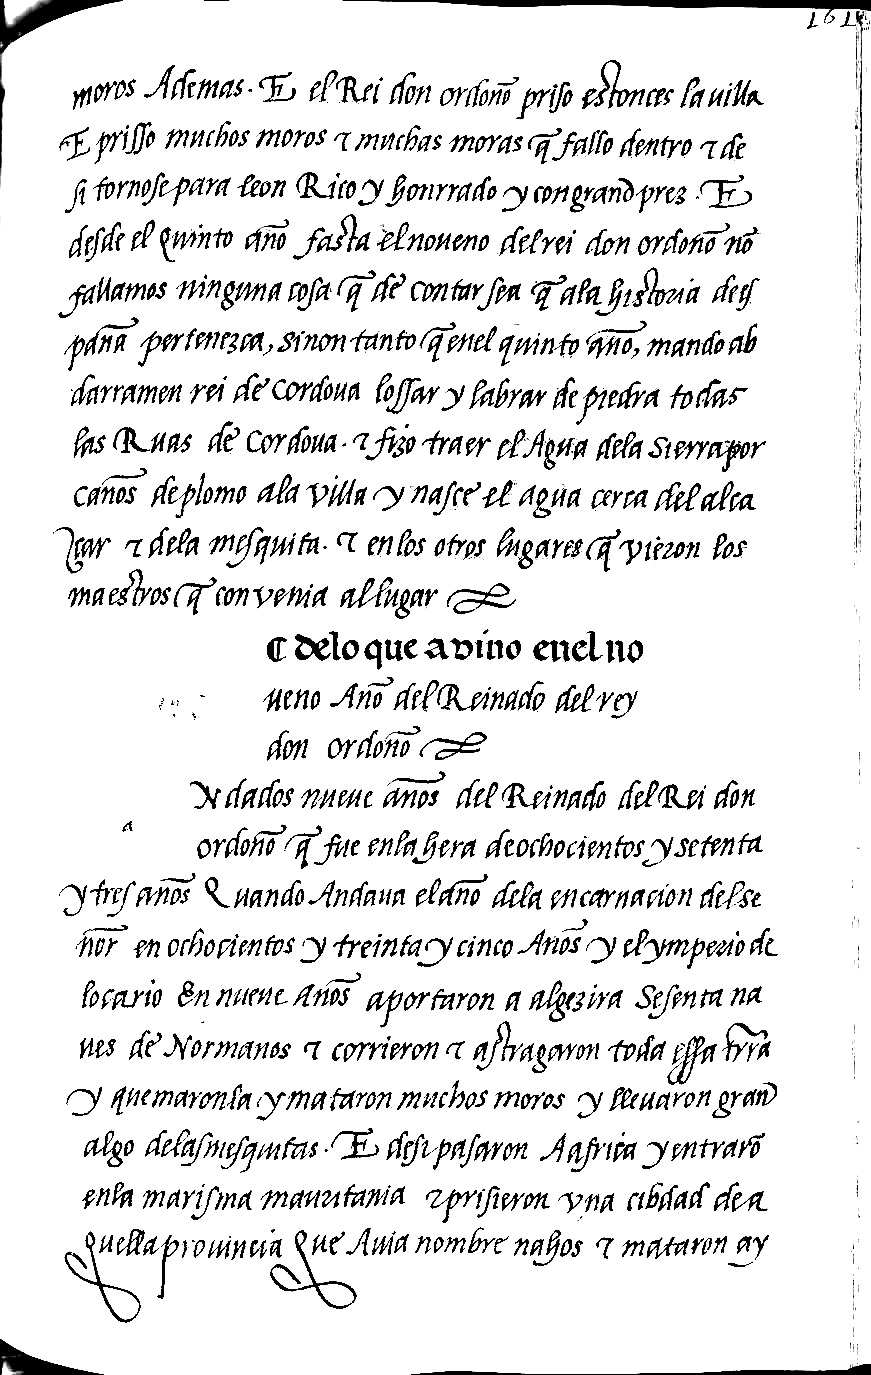 161
moros Ademas. E el Rei don ordoño priso estonces la uilla
E prisso muchos moros τ muchas moras q̃ fallo dentro τ de
si tornose para leon Rico y honrrado y con grand prez. E
desde el quinto año fasta el noueno del rei don ordoño nõ
fallamos ninguna cosa q̃ de contar sea q̃ ala historia de es
paña pertenezca, sinon tanto q̃ enel quinto año, mando ab
darramen rei de cordoua lossar y labrar de piedra todas
las Ruas de cordoua. τ fizo traer el Agua dela sierra por
caños de plomo ala villa y nasce el agua cerca del alca
çar τ dela mesquita. τ en los otros lugares q̃ vieron los
maestros q̃ convenia al lugar
¶ delo que avino enel no
ueno Año del Reinado del rey
don ordoño
Ndados nueue años del Reinado del Rei don
a
ordoño q̃ fue en la hera de ochocientos y setenta
y tres años Quando Andaua el año dela encarnacion del se
ñor en ochocientos y treinta y cinco Años y el ymperio de
locario En nueue Años aportaron a algezira Sesenta na
ues de Normanos τ corrieron τ astragaron toda essa trr̃a
y quemaronla y mataron muchos moros y lleuaron grand
algo delas mesquitas. E desi pasaron A africa y entrarõ
en la marisma mauritania τ prisieron vna cibdad de a
quella prouincia Que Auia nombre nahos τ mataron ay